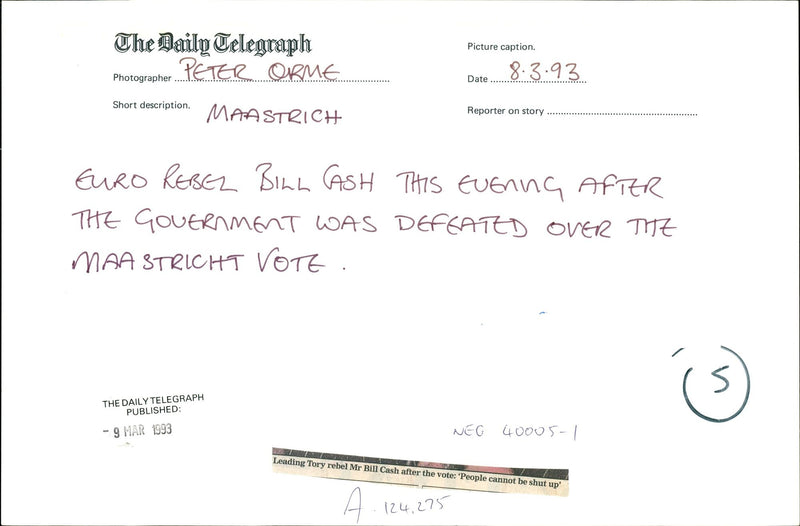 The Daily Telegraph
Picture caption.
Photographer PETER ORME
Date 8.3.93
Short description. MAASTRICH
Reporter on story
EURO REBEL BILL CASH THIS EVENING AFTER
THE GOVERNMENT WAS DEFEATED OVER THE
MAASTRICHT VOTE.
S
THE DAILY TELEGRAPH
PUBLISHED:
- 9 MAR 1993
NEG 40005-1
Leading Tory rebel Mr Bill Cash after the vote: 'People cannot be shut up'
A. 124.275